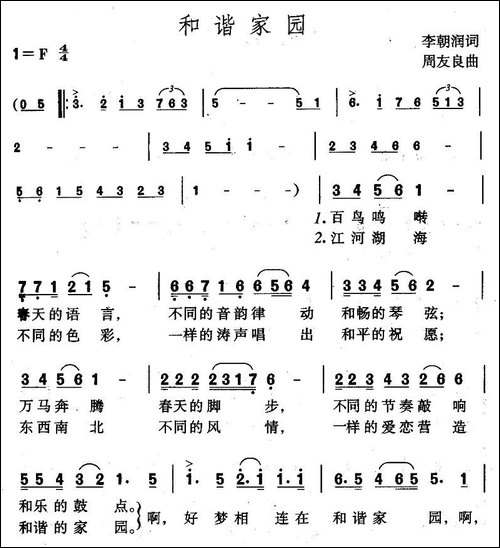 和谐家园
1=F 4/4
李朝润词
周友良曲
(0 5 3. 2 1 3 7 6 3 5 - - 5 1 6. 1 7 6 5 1 3
2 - - - 3 4 5 1 1 - - 2 3 4 6 6 - -
5 6 1 5 4 3 2 3 1 - - -) 3 4 5 6 1
1.百鸟鸣啭
2.江河湖海
7 7 1 2 1 5 - 6 6 7 1 6 6 5 6 4 3 3 4 5 6 2 -
春天的语言, 不同的音韵律动 和畅的琴弦;
不同的色彩, 一样的涛声唱出 和平的祝愿;
3 4 5 6 1 - 2 2 2 2 3 1 7 6 - 2 2 3 4 3 2 6 6
万马奔腾 春天的脚步, 不同的节奏敲响
东西南北 不同的风情, 一样的爱恋营造
5 5 4 3 2 1. 5 1 5 2. 1 1. 1 6. 5 4 6 5 5. 5
和乐的鼓点。
和谐的家园。
啊, 好梦相连在和谐家园, 啊,